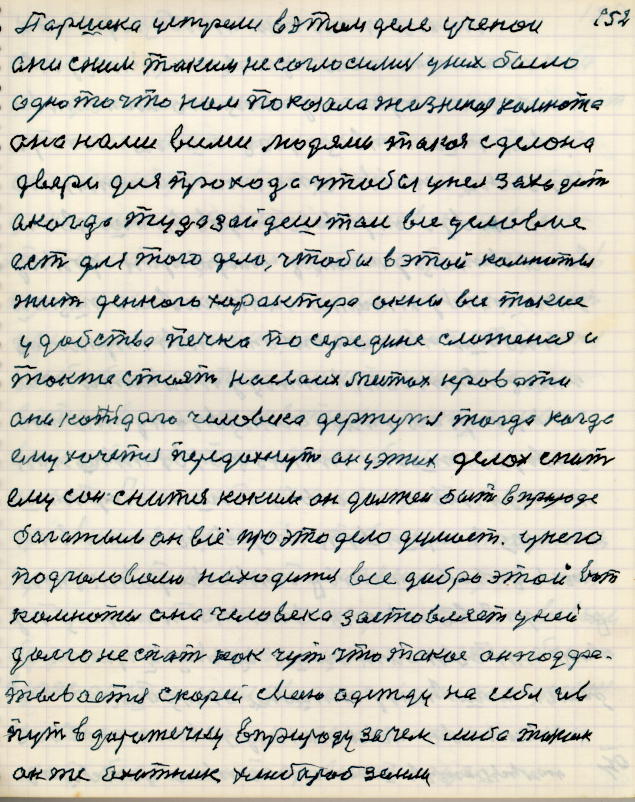 152
Паршека устрели в этом деле ученои
ани сним таким несогласилис уних было
одно то что нам показала жизненая комната
она нами всеми людями такая сделона
двери для прохода чтобы унея заходит
акогда туда зайдеш там все условие
ест для того дело, чтобы в этой комноты
жит денного характера окны все такие
удобства печка посередине сложеная и
также стоят насваих местах кровати
они каждого человека держутя тогда когда
ему хочется передохнут он у этих делох спит
ему сон снится каким он должен быт в природе
багатым он всё про это дело думает. унего
подголовою находится все добро этой вот
комноты она человека заставляет уней
долго не спат как чут что такое он подхва-
тывается скорей свою одежду на себя и в
пут в дорожечку в природу зачем либа таким
он же охотник хлибороб земли